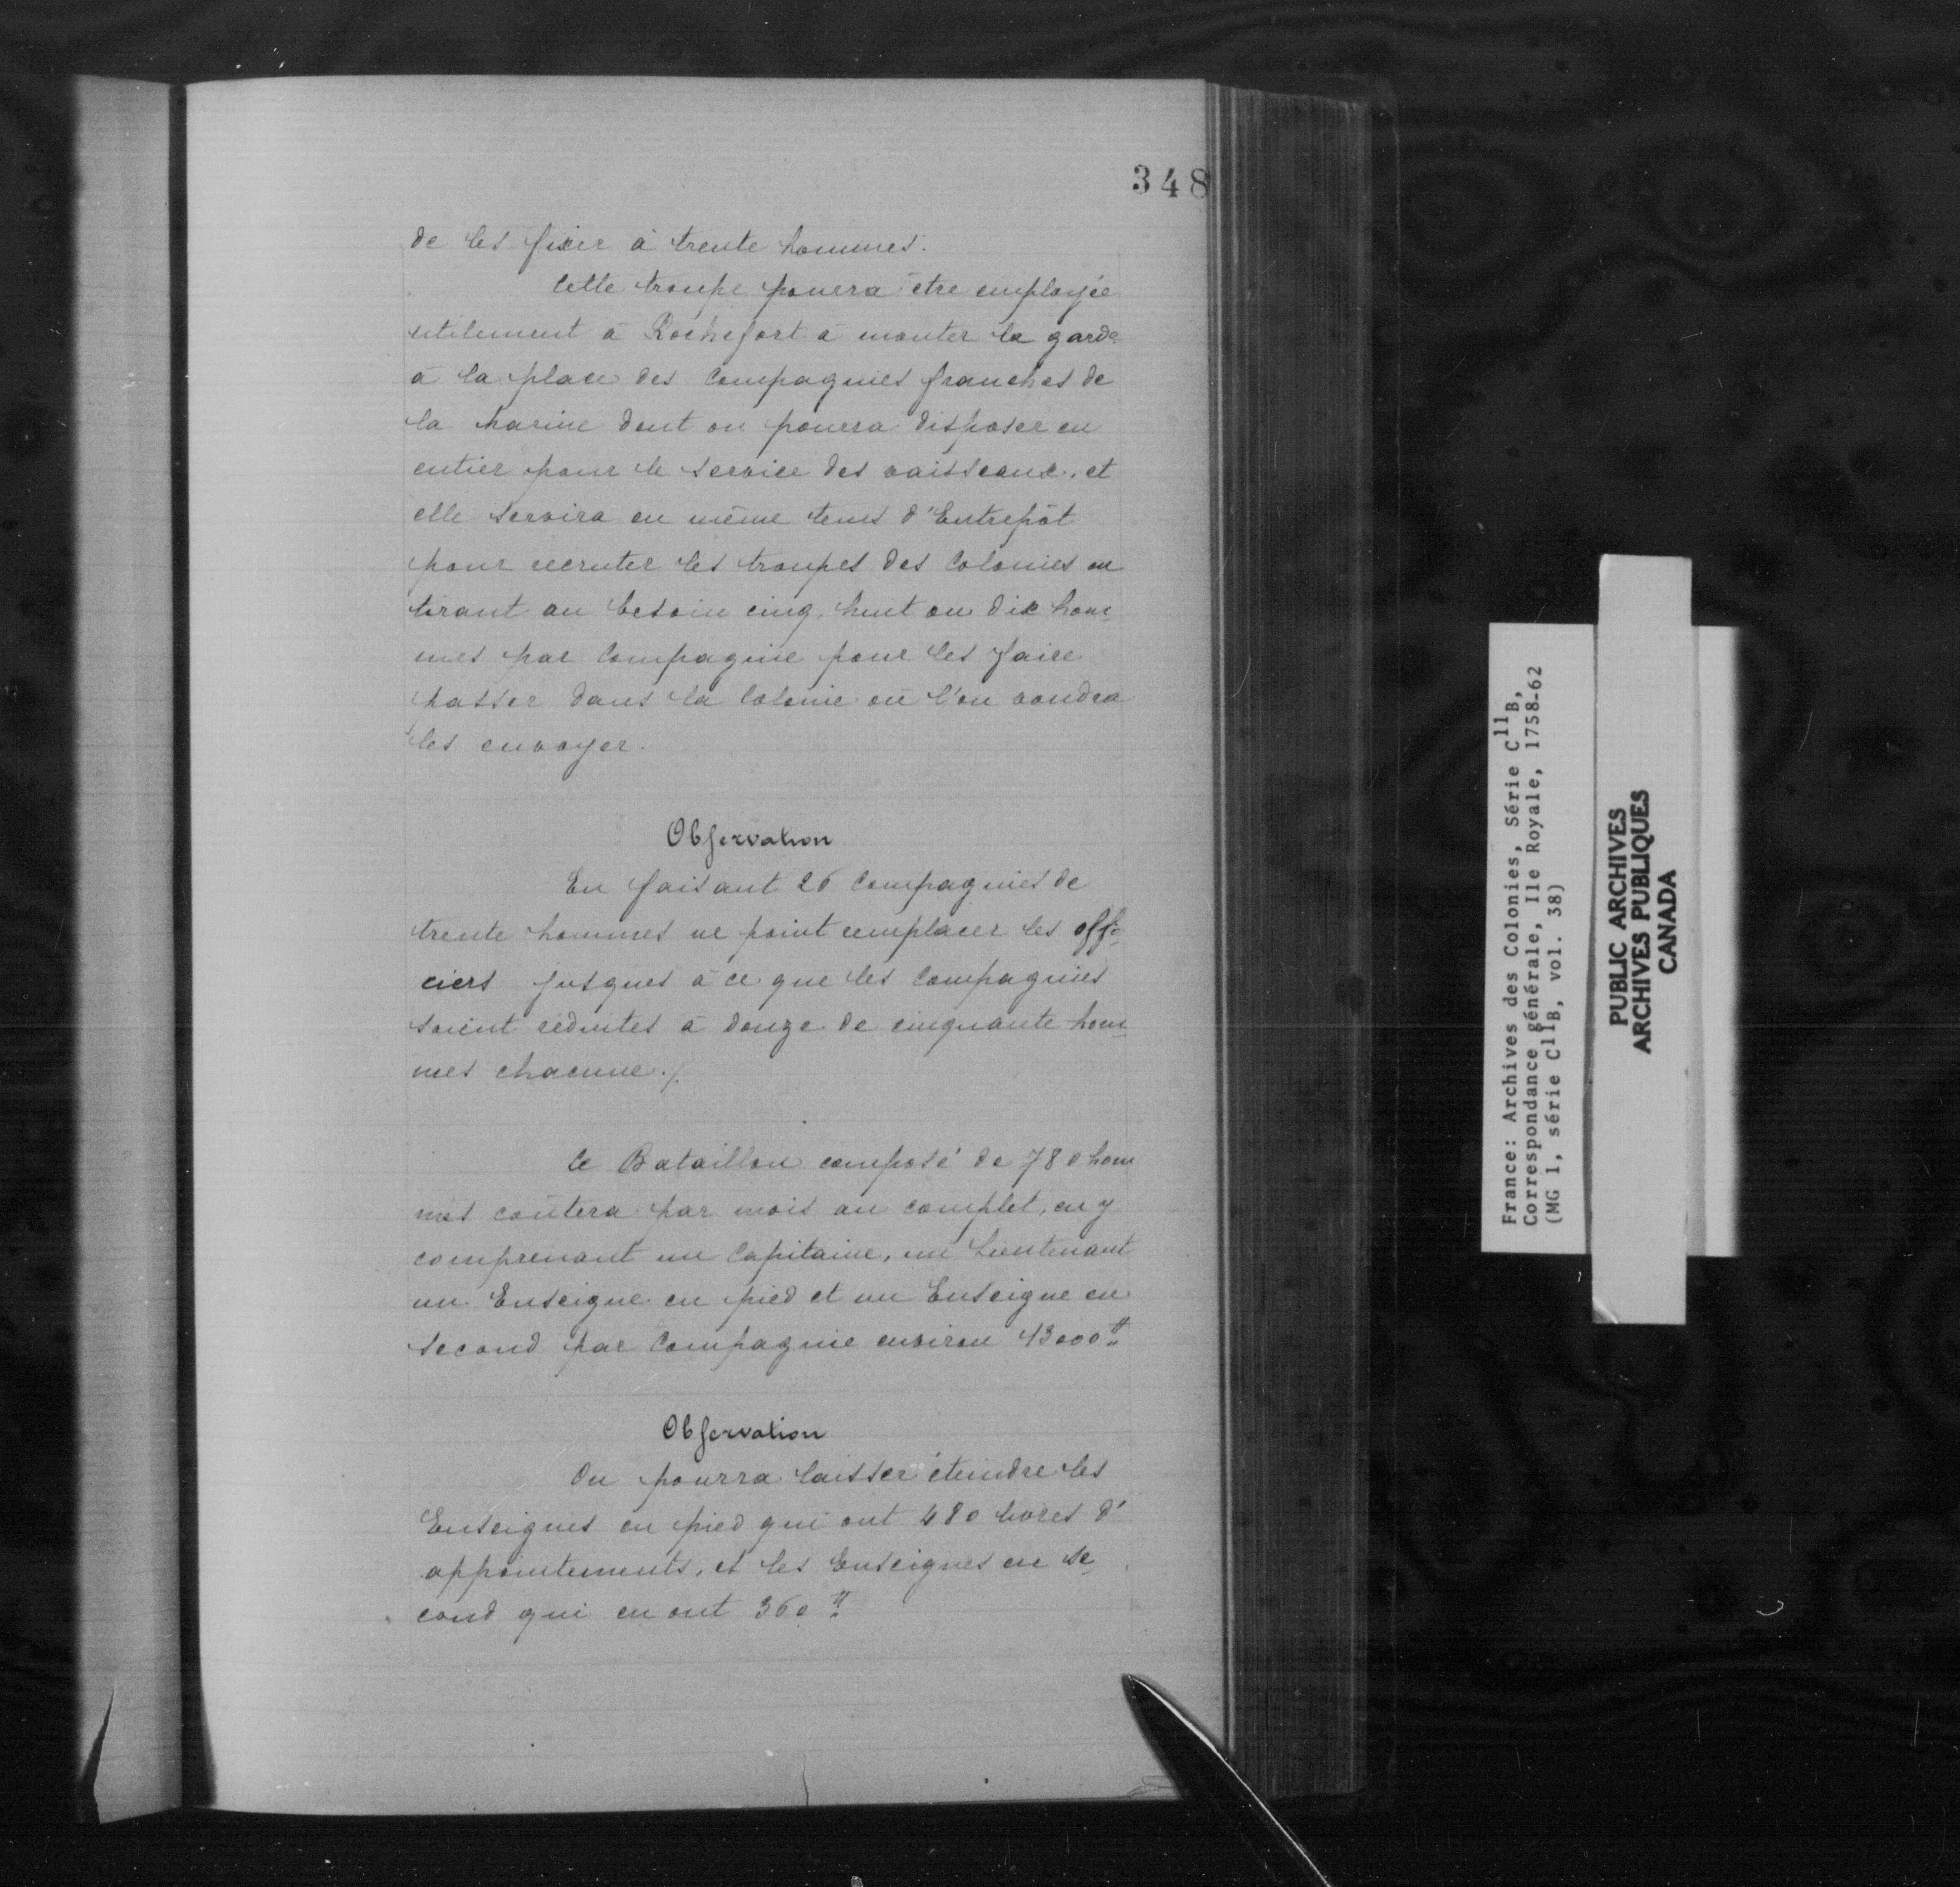 348
de les fixer à trente hommes.
Cette troupe pourra être employée
utilement à Rochefort à monter la garde
à la place des Compagnies franches de
la Marine dont on pourra disposer en
entier pour le service des vaisseaux, et
elle servira en même tems d'Entrepôt
pour recruter les troupes des Colonies en
tirant au besoin cinq, huit ou dix hom
mes par Compagnie pour les faire
passer dans la Colonie où l'on voudra
les envoyer.
Observation
En faisant 26 Compagnies de
trente hommes ne point remplacer les offi
ciers jusques à ce que les Compagnies
soient réduites à douze de cinquante hom
mes chacune./.
Le Bataillon composé de 780 hom
mes coûtera par mois au complet, en y
comprenant un Capitaine, un Lieutenant
un Enseigne en pied et un Enseigne en
second par Compagnie environ 13000 ₶
Observation
On pourra laisser éteindre les
Enseignes en pied qui ont 480 livres d'
appointements, et les Enseignes en se
cond qui en ont 360 ₶
France: Archives des Colonies, Série C11B,
Correspondance générale, Ile Royale, 1758-62
(MG 1, série C11B, vol. 38)
PUBLIC ARCHIVES
ARCHIVES PUBLIQUES
CANADA